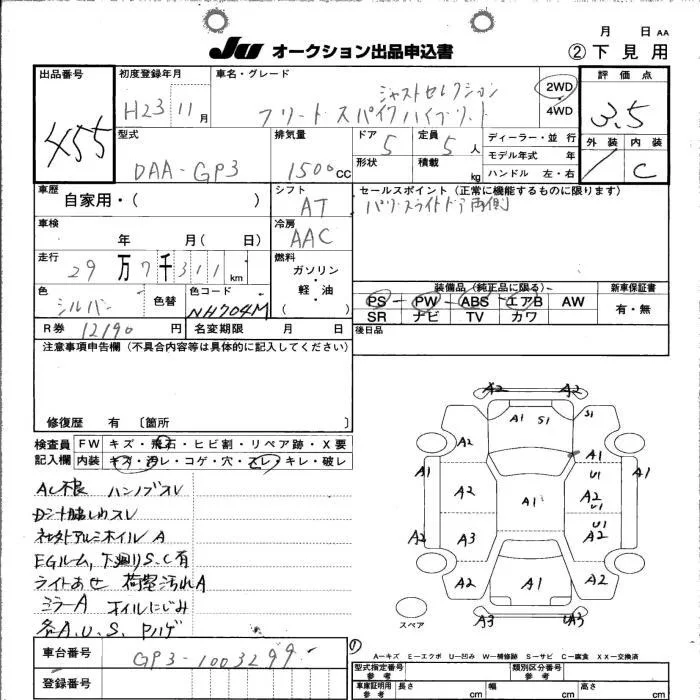 月 日 AA
JU オークション出品申込書 ②下見用
出品番号 初度登録年月 車名・グレード 評価点
455
H23 11月
ジャストセレクション
フリード スパイク ハイブリッド
2WD
4WD
3.5
型式 排気量 ドア 定員 ディーラー・並行 外装 内装
DAA-GP3 1500cc 5 5人
形状 積載 kg
モデル年式 年
ハンドル 左・右
C
車歴 シフト セールスポイント(正常に機能するものに限ります)
自家用・( )
AT
パワースライドドア両側
車検 冷房
年 月( 日)
AAC
走行 燃料
29万7千311km
ガソリン
・
軽・油
・
( )
装備品(純正品に限る) 新車保証書
色 色替 色コード
シルバー NH704M
PS PW ABS エアB AW 有・無
SR ナビ TV カワ
R券 12190円 名変期限 月 日
後日品
注意事項申告欄(不具合内容等は具体的に記入してください)
修復歴 有 〔箇所 〕
検査員 FW キズ・飛石・ヒビ割・リペア跡・X要
記入欄 内装 キズ・汚レ・コゲ・穴・スレ・キレ・破レ
AC不良 ハンノブスレ
Dシート スレ
社外アルミホイル A
EGルーム,下廻りS.C有
ライトあせ 荷室汚れA
ミラーA オイルにじみ
各A.U.S. Pハゲ
A2 A2
A1 S1 S1
A2
A1
A1 U1 A1
A2 A1 A2 U1
U1
A2 A3 A2
A2 A1 A2
スペア
A3 UA3
A-キズ E-エクボ U-凹ミ W-補修跡 S-サビ C-腐食 XX-交換済
車台番号
GP3-1003299
登録番号
型式指定番号 参考 類別区分番号 参考
車庫証明用 参考 長さ cm 幅 cm 高さ cm